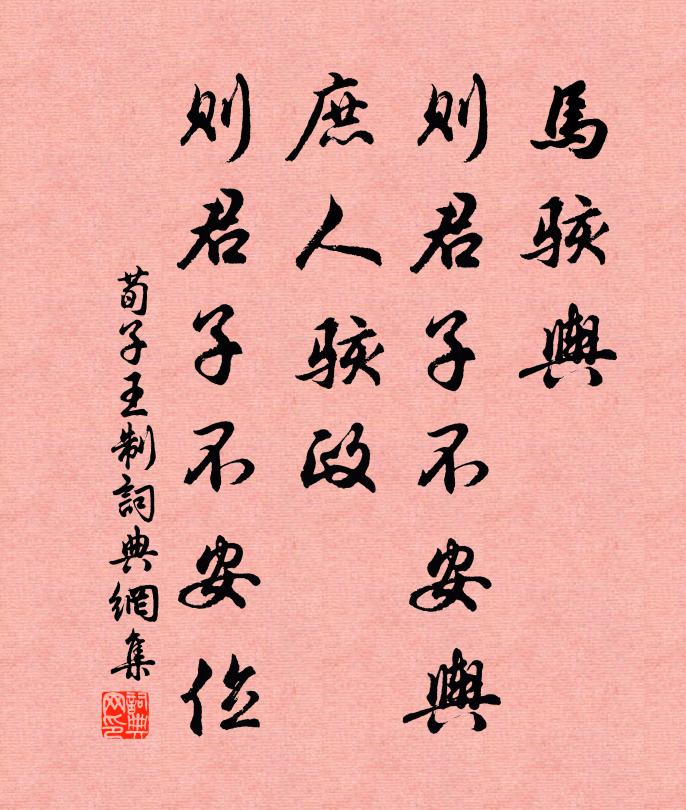 馬駭輿
則君子不安輿
庶人駭政
則君子不安位
荀子王制詞典網集
詞典网印